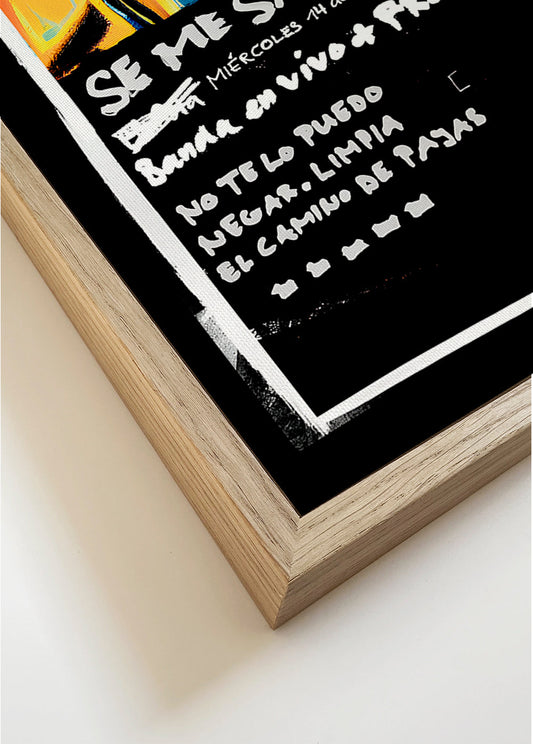 SE ME S
MIÉRCOLES 14 d
Banda en vivo + PR
NO TE LO PUEDO
NEGAR. LIMPIA
EL CAMINO DE PAJAS